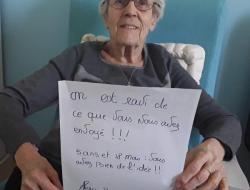 on est ravi de
ce que vous nous avez
envoyé !!!
5 ans et 18 mois : vous
avez bien de l'idée !!